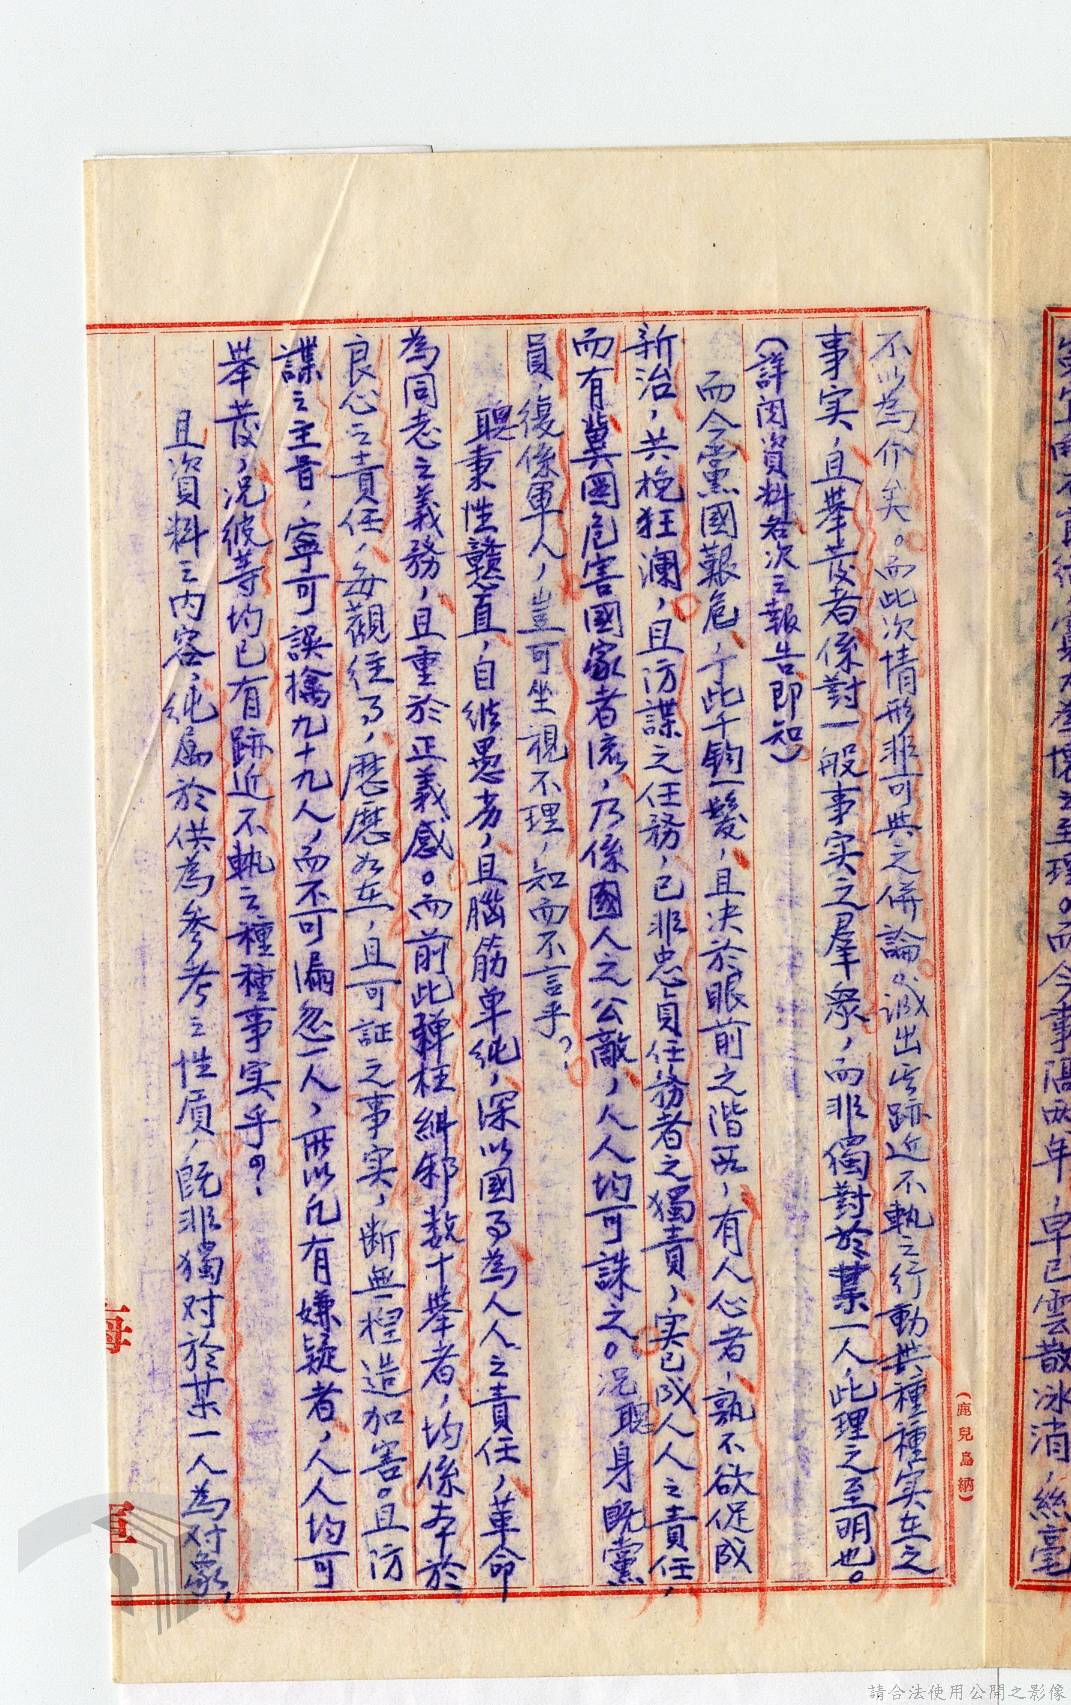 絲毫
不以為介矣。而此次情形非可與之併論。誠出諸跡近不軌之行動與種種实在之
事实，且舉发者係對一般事实之羣眾，而非獨對於某一人，此理之至明也。
（詳閱資料各次之報告即知）
而今黨國艱危，于此千鈞一髮，且决於眼前之階段，有人心者，孰不欲促成
新治，共挽狂瀾，且防諜之任務，已非忠貞任務者之獨責，实已成人人之責任，
而有冀圖危害國家者流，乃係國人之公敵，人人均可誅之。况聰身既黨
員，復係軍人，豈可坐視不理，知而不言乎？
聰秉性戇直，自維愚劣，且腦筋单純，深以國事為人人之責任，革命
為同志之義務，且重於正義感。而前此彈枉糾邪数十舉者，均係本於
良心之責任，每觀往事，歷歷如在，且可証之事实，斷無揑造加害。且防
諜之主旨，寧可誤擒九十九人，而不可漏忽一人，所以凡有嫌疑者，人人均可
舉发，况彼等均已有跡近不軌之種種事实乎？
且資料之内容，純属於供為參考之性质，既非獨对於某一人為对象，
（鹿兒島納）
海
軍
請合法使用公開之影像